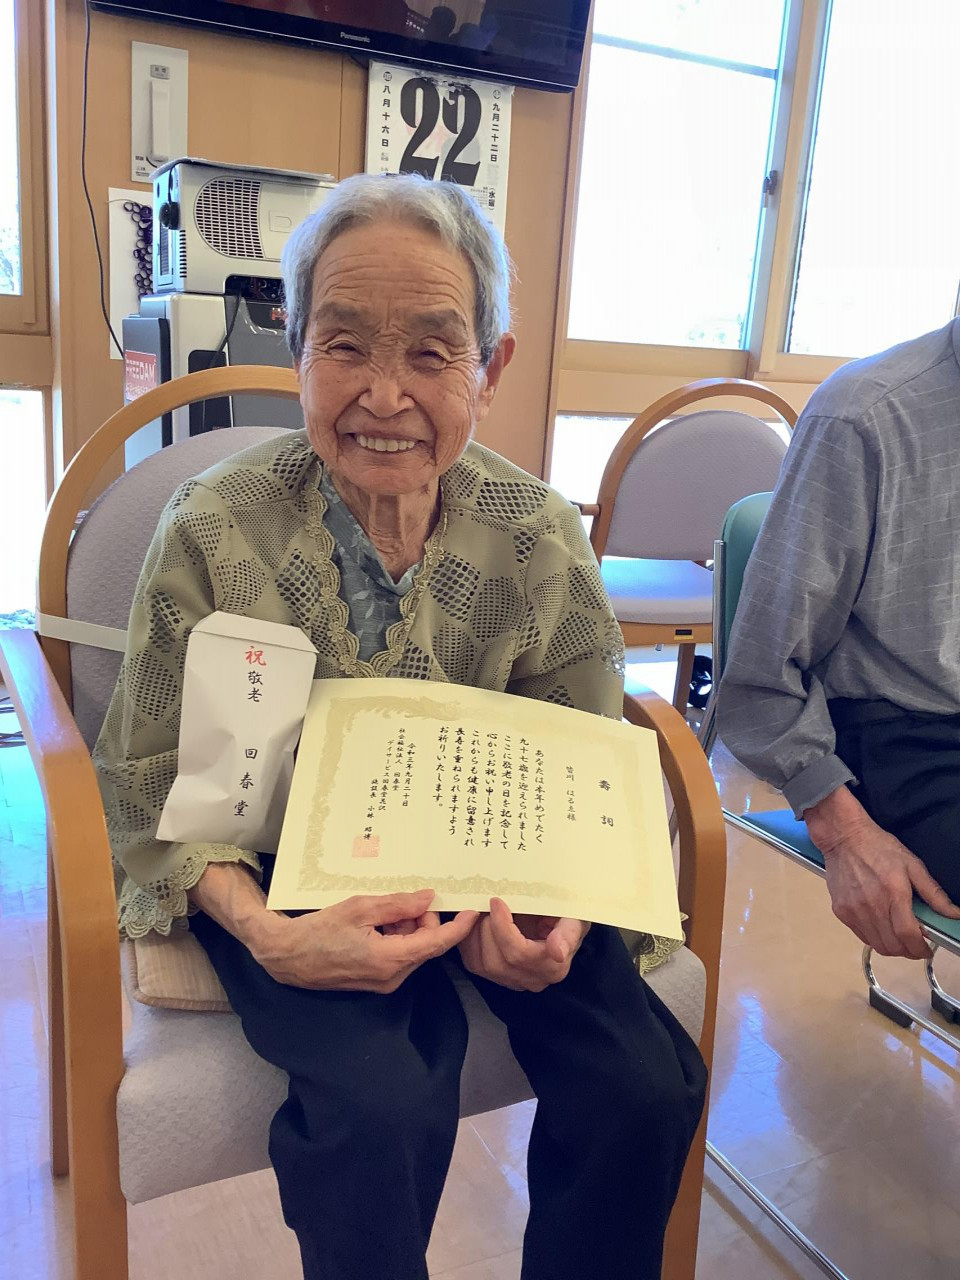 Panasonic
九月二十二日
22
八月十六日
DAM
祝
敬老
回春堂
壽詞
皆川 はる王様
あなたは本年めでたく
九十七歳を迎えられました
ここに敬老の日を記念して
心からお祝い申し上げます
これからも健康に留意され
長寿を重ねられますよう
お祈りいたします。
令和三年九月二十日
社会福祉法人 回春堂
デイサービス回春堂
施設長 小林